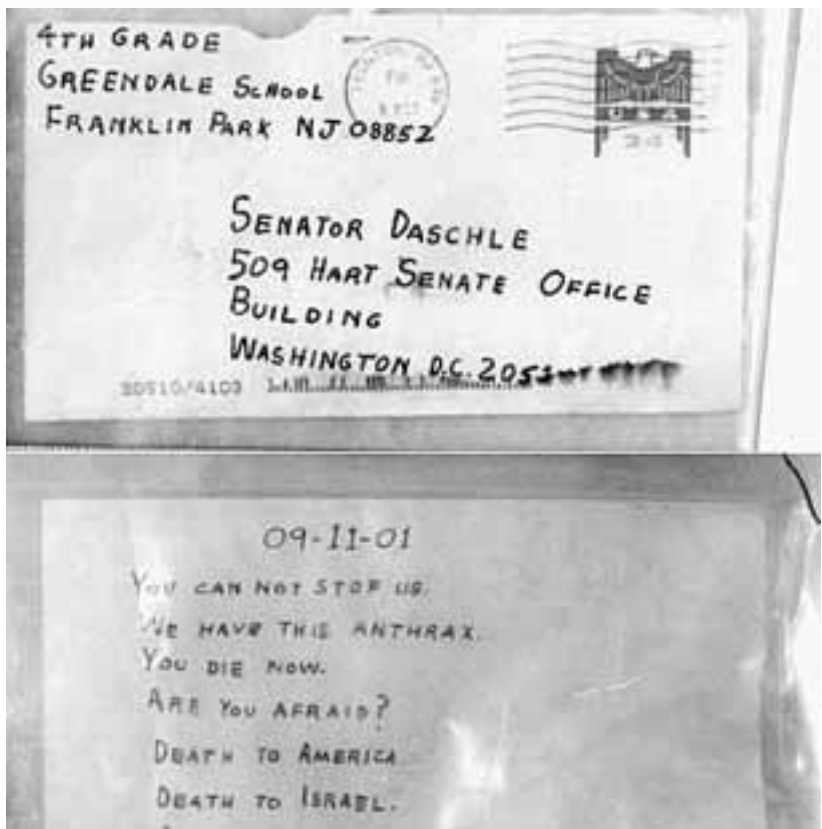 4TH GRADE
GREENDALE SCHOOL
FRANKLIN PARK NJ 08852
SENATOR DASCHLE
509 HART SENATE OFFICE
BUILDING
WASHINGTON D.C. 2051
20510/4103
09-11-01
YOU CAN NOT STOP US.
WE HAVE THIS ANTHRAX.
YOU DIE NOW.
ARE YOU AFRAID?
DEATH TO AMERICA
DEATH TO ISRAEL.